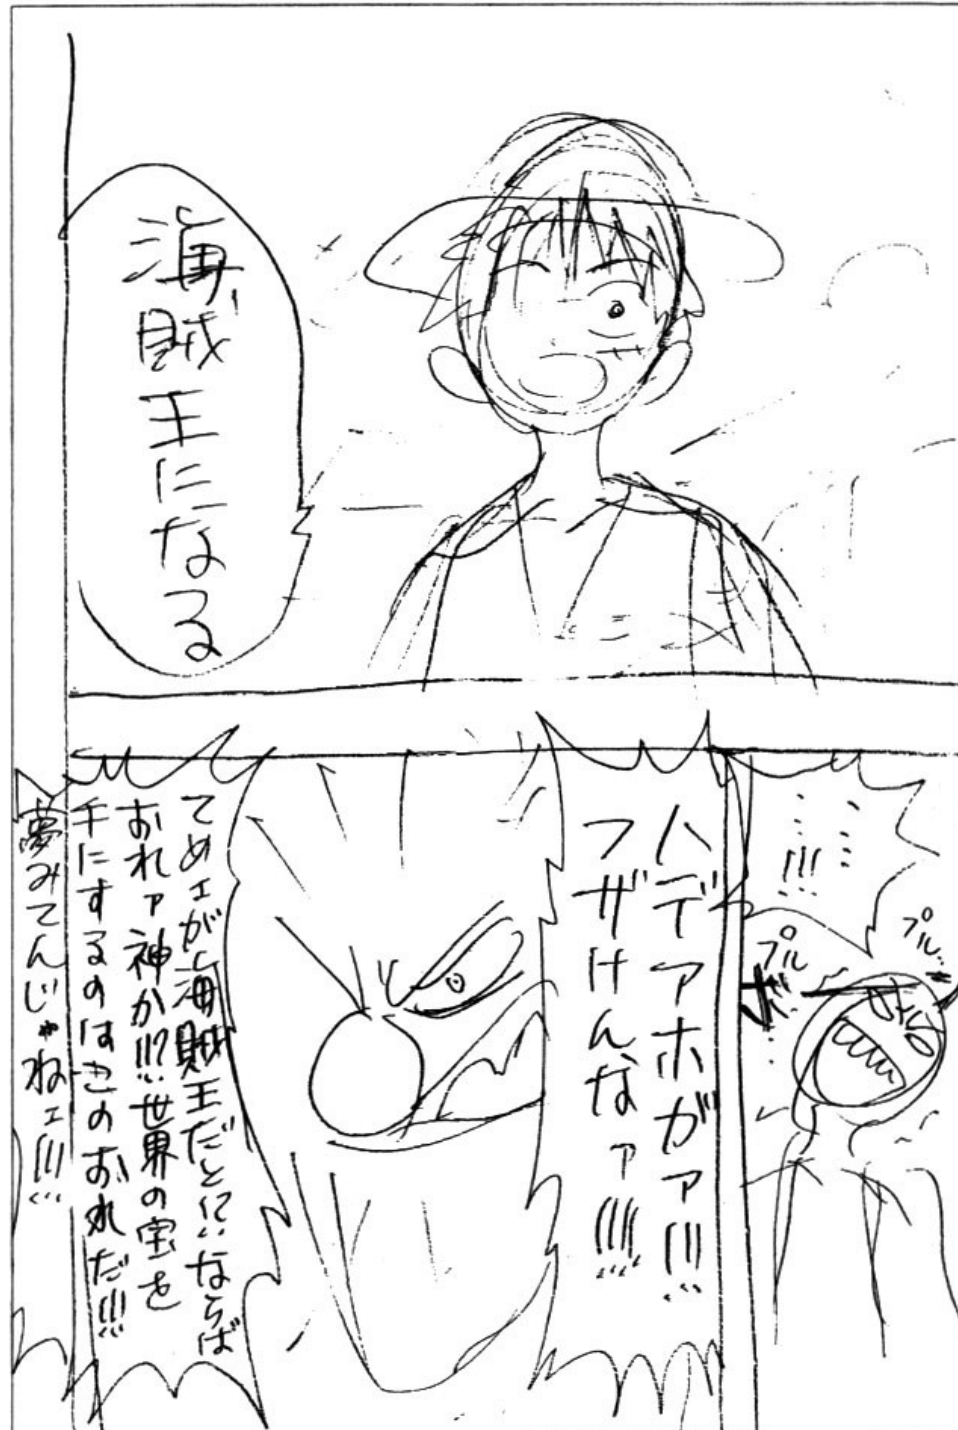 海賊王になる
……!!!
プル…
プル
ハデアホがァ!!!
フザけんなァ!!!!
てめェが海賊王だと!?!?ならば
おれァ神か!!?世界の宝を
手にするのはこのおれだ!!!
夢みてんじゃねェ!!!